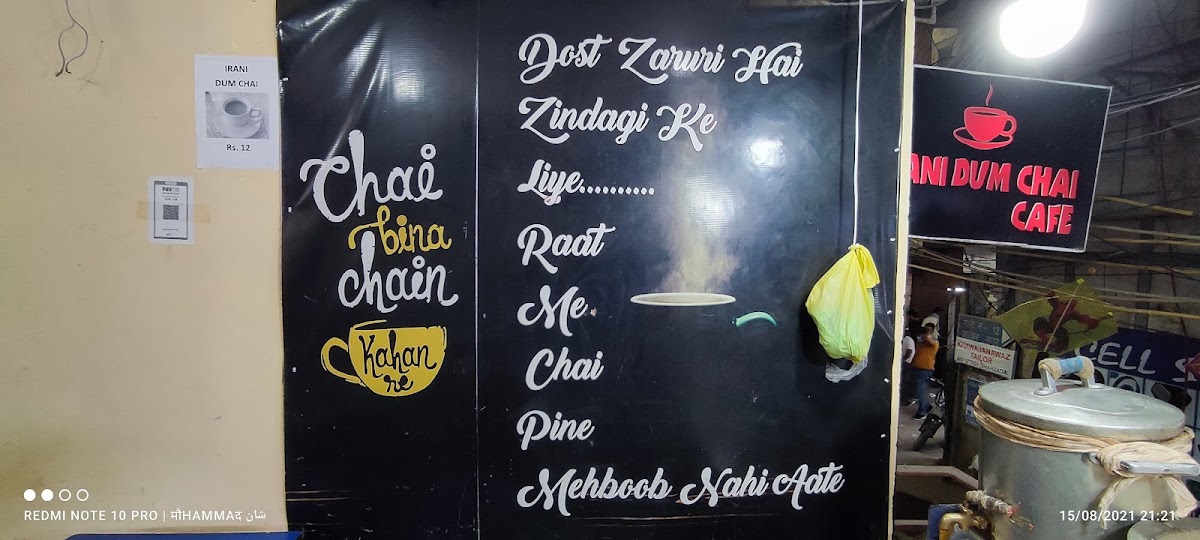 IRANI
DUM CHAI
Rs. 12
Chai
bina
chain
Kahan
re
Dost Zaruri Hai
Zindagi Ke
Liye..........
Raat
Me
Chai
Pine
Mehboob Nahi Aate
ANI DUM CHAI
CAFE
TAILOR
CELL
REDMI NOTE 10 PRO | मौHAMMAद شان
15/08/2021 21:21